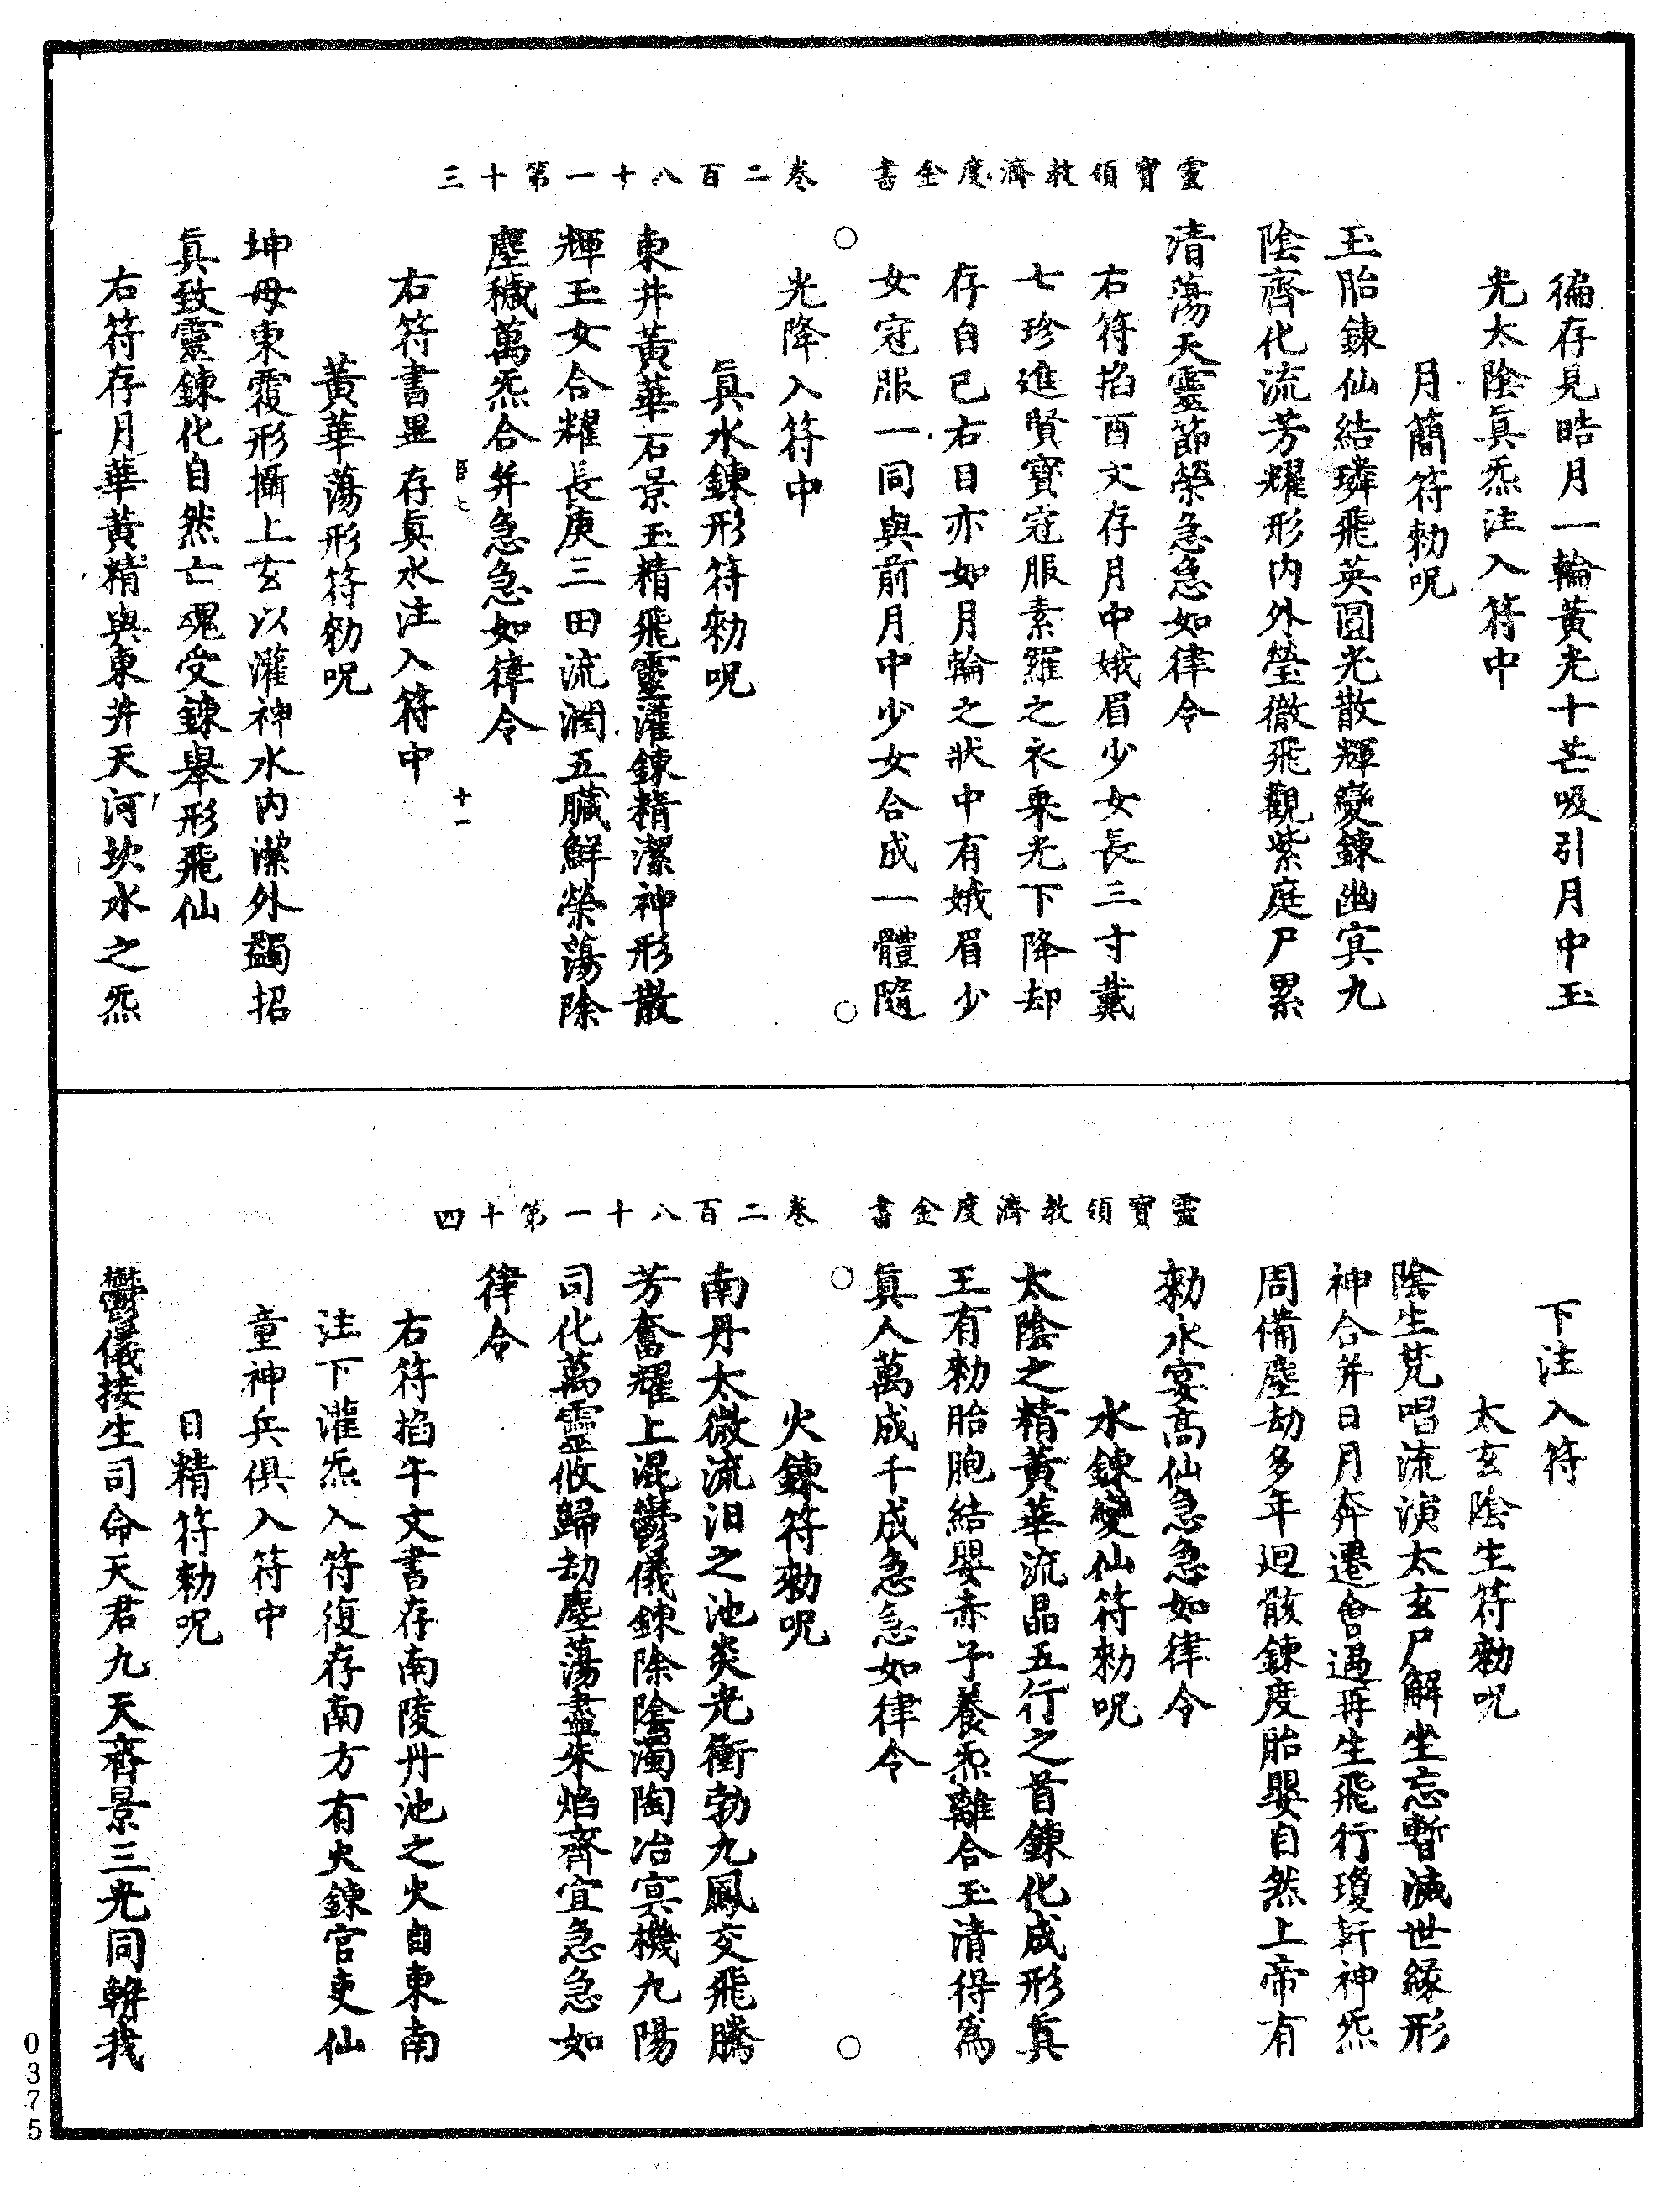 靈寶領教濟度金書　卷二百八十一第十三
徧存見晧月一輪黃光十芒吸引月中玉
光太陰眞炁注入符中
月簡符勑呪
玉胎鍊仙結璘飛英圓光散輝變鍊幽冥九
陰齊化流芳耀形內外瑩徹飛觀紫庭尸累
清蕩天靈節榮急急如律令
右符掐酉文存月中娥眉少女長三寸戴
七珍進賢寶冠服素羅之衣乘光下降却
存自已右目亦如月輪之狀中有娥眉少
女冠服一同與前月中少女合成一體隨
光降入符中
眞水鍊形符勑呪
東井黃華石景玉精飛靈灌鍊精潔神形散
輝玉女合耀長庚三田流潤五臟鮮榮蕩除
塵穢萬炁合并急急如律令
十一
右符書畢存眞水注入符中
黃華蕩形符勑呪
坤母東覆形攝上玄以灌神水內潔外蠲招
眞致靈鍊化自然亡魂受鍊舉形飛仙
右符存月華黃精與東井天河坎水之炁
靈寶領教濟度金書　卷二百八十一第十四
下注入符
太玄陰生符勑呪
陰生梵唱流演太玄尸解坐忘暫滅世緣形
神合并日月奔遷會遇再生飛行瓊軒神炁
周備塵劫多年迴骸鍊度胎嬰自然上帝有
勑水宴高仙急急如律令
水鍊變仙符勑呪
太陰之精黃華流晶五行之首鍊化成形眞
王有勑胎胞結嬰赤子養炁離合玉清得爲
眞人萬成千成急急如律令
火鍊符勑呪
南丹太微流汨之池炎光衝勃九鳳交飛騰
芳奮耀上混鬱儀鍊除陰濁陶冶冥機九陽
司化萬靈攸歸劫塵蕩盡朱焰齊宜急急如
律令
右符掐午文書存南陵丹池之火自東南
注下灌炁入符復存南方有火鍊官吏仙
童神兵俱入符中
日精符勑呪
鬱儀接生司命天君九天齊景三光同軿我
0375